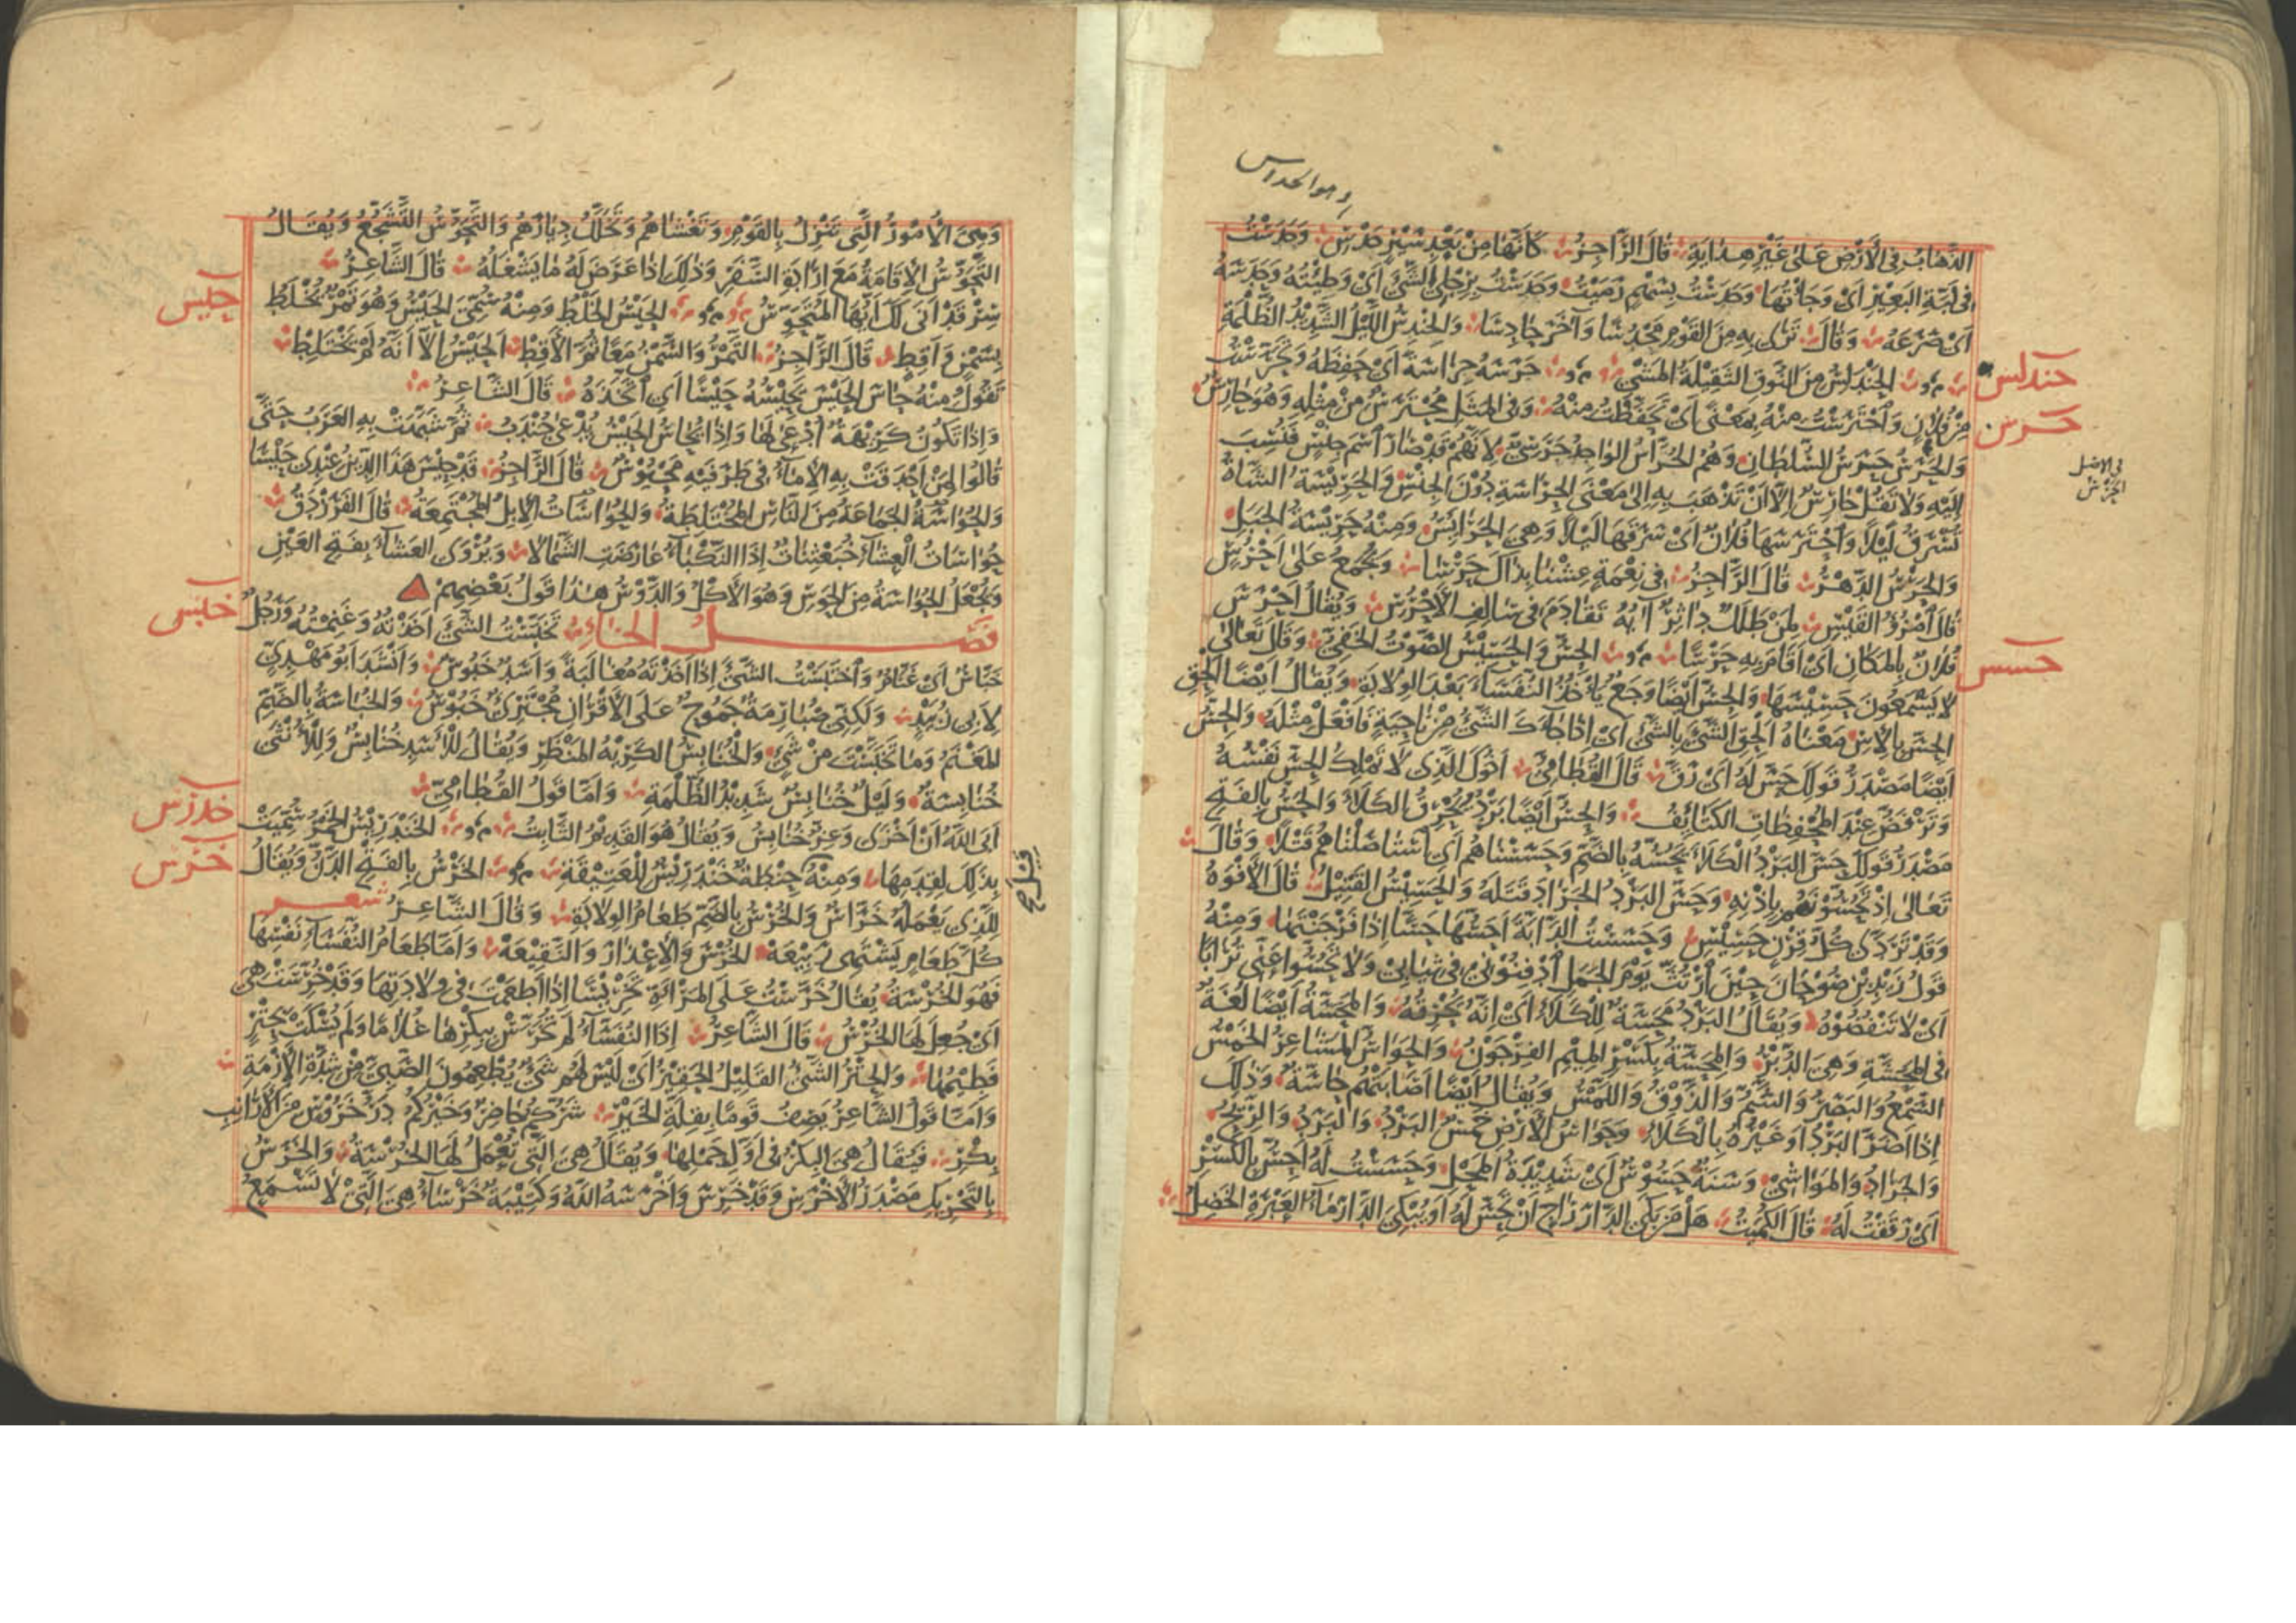 وهو الحداس
الذَّهَابُ فِي الْأَرْضِ عَلَى غَيْرِ هِدَايَةٍ قَالَ الرَّاجِزُ كَأَنَّهَا مِنْ بَعْدِ سَيْرٍ حَدْسِ وَحَدَسْتُ
فِي لَبَّةِ الْبَعِيْرِ أَيْ وَجَأْتُهَا وَحَدَسْتُ بِسَهْمٍ رَمَيْتُ وَحَدَسْتُ بِرِجْلِي الشَّيْءَ أَيْ وَطِئْتُهُ وَحَدَسَهُ
أَيْ صَرَعَهُ وَقَالَ تَرَى بِهِ مِنَ الْقَوْمِ مَحْدُوسًا وَآخَرَ حَادِسَا وَالْحِنْدِسُ اللَّيْلُ الشَّدِيْدُ الظُّلْمَةِ
حندلس
الْحَنْدَلِسُ مِنَ النُّوقِ الثَّقِيْلَةُ الْمَشْيِ حَرَسَهُ حِرَاسَةً أَيْ حَفِظَهُ وَتَحَرَّسْتُ
حرس
مِنْ فُلَانٍ وَاحْتَرَسْتُ مِنْهُ بِمَعْنًى أَيْ تَحَفَّظْتُ مِنْهُ وَفِي الْمَثَلِ مُحْتَرِسٌ مِنْ مِثْلِهِ وَهُوَ حَارِسٌ
وَالْحَرَسُ حَرَسُ السُّلْطَانِ وَهُمُ الْحُرَّاسُ الْوَاحِدُ حَرَسِيٌّ لِأَنَّهُ قَدْ صَارَ اسْمَ جِنْسٍ فَنُسِبَ
في الاصل الحرس
إِلَيْهِ وَلَا تَقُلْ حَارِسٌ إِلَّا أَنْ تَذْهَبَ بِهِ إِلَى مَعْنَى الْحِرَاسَةِ دُوْنَ الْجِنْسِ وَالْحَرِيْسَةُ الشَّاةُ
تُسْرَقُ لَيْلًا وَاحْتَرَسَهَا فُلَانٌ أَيْ سَرَقَهَا لَيْلًا وَهِيَ الْحَرَائِسُ وَمِنْهُ حَرِيْسَةُ الْجَبَلِ
وَالْحَرْسُ الدَّهْرُ قَالَ الرَّاجِزُ فِي نِعْمَةٍ عِشْنَا بِذَاكَ حَرْسَا وَيُجْمَعُ عَلَى أَحْرُسٍ
قَالَ امْرُؤُ الْقَيْسِ لِمَنْ طَلَلٌ دَاثِرٌ آيُهُ تَقَادَمَ فِي سَالِفِ الْأَحْرُسِ وَيُقَالُ أَحْرَسَ
فُلَانٌ بِالْمَكَانِ أَيْ أَقَامَ بِهِ حَرْسًا الْحِسُّ وَالْحَسِيْسُ الصَّوْتُ الْخَفِيُّ وَقَالَ تَعَالَى
حسس
لَا يَسْمَعُونَ حَسِيْسَهَا وَالْحِسُّ أَيْضًا وَجَعٌ يَأْخُذُ النُّفَسَاءَ بَعْدَ الْوِلَادَةِ وَيُقَالُ أَيْضًا أَلْحِقِ
الْحِسَّ بِالْإِسِّ مَعْنَاهُ أَلْحِقِ الشَّيْءَ بِالشَّيْءِ أَيْ إِذَا جَاءَكَ الشَّيْءُ مِنْ نَاحِيَةٍ فَافْعَلْ مِثْلَهُ وَالْحِسُّ
أَيْضًا مَصْدَرُ قَوْلِكَ حَسَّ لَهُ أَيْ رَقَّ قَالَ الْقُطَامِيُّ أَخُوْكَ الَّذِي لَا تَمْلِكُ الْحِسَّ نَفْسُهُ
وَتَرْفَضُّ عِنْدَ الْمُحْفِظَاتِ الْكَتَائِفُ وَالْحِسُّ أَيْضًا بَرْدٌ يُحْرِقُ الْكَلَأَ وَالْحَسُّ بِالْفَتْحِ
مَصْدَرُ قَوْلِكَ حَسَّ الْبَرْدُ الْكَلَأَ يَحُسُّهُ بِالضَّمِّ وَحَسَسْنَاهُمْ أَيِ اسْتَأْصَلْنَاهُمْ قَتْلًا وَقَالَ
تَعَالَى إِذْ تَحُسُّوْنَهُمْ بِإِذْنِهِ وَحَسَّ الْبَرْدُ الْجَرَادَ قَتَلَهُ وَالْحَسِيْسُ الْقَتِيْلُ قَالَ الْأَفْوَهُ
وَقَدْ تَرَدَّى كُلُّ قِرْنٍ حَسِيْسِ وَحَسَسْتُ الدَّابَّةَ أَحُسُّهَا حَسًّا إِذَا فَرْجَنْتَهَا وَمِنْهُ
قَوْلُ زَيْدِ بْنِ صُوْحَانَ حِيْنَ ارْتُثَّ يَوْمَ الْجَمَلِ ادْفِنُوْنِي فِي ثِيَابِي وَلَا تَحُسُّوا عَنِّي تُرَابًا
أَيْ لَا تَنْفُضُوْهُ وَيُقَالُ الْبَرْدُ مَحَسَّةٌ لِلْكَلَأِ أَيْ إِنَّهُ يُحْرِقُهُ وَالْمَحَسَّةُ أَيْضًا لُغَةٌ
فِي الْمَحَشَّةِ وَهِيَ الدُّبُرُ وَالْمِحَسَّةُ بِكَسْرِ الْمِيْمِ الْفِرْجَوْنُ وَالْحَوَاسُّ الْمَشَاعِرُ الْخَمْسُ
السَّمْعُ وَالْبَصَرُ وَالشَّمُّ وَالذَّوْقُ وَاللَّمْسُ وَيُقَالُ أَيْضًا أَصَابَتْهُمْ حَاسَّةٌ وَذَلِكَ
إِذَا أَضَرَّ الْبَرْدُ أَوْ غَيْرُهُ بِالْكَلَأِ وَحَوَاسُّ الْأَرْضِ خَمْسٌ الْبَرْدُ وَالْبَرَدُ وَالرِّيْحُ
وَالْجَرَادُ وَالْمَوَاشِي وَسَنَةٌ حَسُوْسٌ أَيْ شَدِيْدَةُ الْمَحْلِ وَحَسَسْتُ لَهُ أَحِسُّ بِالْكَسْرِ
أَيْ رَقَقْتُ لَهُ قَالَ الْكُمَيْتُ هَلْ مَنْ بَكَى الدَّارَ رَاجٍ أَنْ تَحِسَّ لَهُ أَوْ يُبْكِيَ الدَّارَ مَاءُ الْعَبْرَةِ الْخَضِلُ
وَهِيَ الْأُمُوْرُ الَّتِي تَنْزِلُ بِالْقَوْمِ وَتَغْشَاهُمْ وَتَخَلَّلُ دِيَارَهُمْ وَالتَّحَوُّسُ التَّشَجُّعُ وَيُقَالُ
التَّحَوُّسُ الْإِقَامَةُ مَعَ إِرَادَةِ السَّفَرِ وَذَلِكَ إِذَا عَرَضَ لَهُ مَا يَشْغَلُهُ قَالَ الشَّاعِرُ
حيس
سِرْ قَدْ أَنَى لَكَ أَيُّهَا الْمُتَحَوِّسُ الْحَيْسُ الْخَلْطُ وَمِنْهُ سُمِّيَ الْحَيْسُ وَهُوَ تَمْرٌ يُخْلَطُ
بِسَمْنٍ وَأَقِطٍ قَالَ الرَّاجِزُ التَّمْرُ وَالسَّمْنُ مَعًا ثُمَّ الْأَقِطْ الْحَيْسُ إِلَّا أَنَّهُ لَمْ يَخْتَلِطْ
تَقُوْلُ مِنْهُ حَاسَ الْحَيْسَ يَحِيْسُهُ حَيْسًا أَيِ اتَّخَذَهُ قَالَ الشَّاعِرُ
وَإِذَا تَكُونُ كَرِيْهَةٌ أُدْعَى لَهَا وَإِذَا يُحَاسُ الْحَيْسُ يُدْعَى جُنْدَبُ ثُمَّ شَبَّهَتْ بِهِ الْعَرَبُ حَتَّى
قَالُوا لِمَنْ أَحْدَقَتْ بِهِ الْإِمَاءُ فِي طَرَفَيْهِ مَحْيُوْسٌ قَالَ الرَّاجِزُ قَدْ حِيْسَ هَذَا الدِّيْنُ عِنْدِي حَيْسَا
وَالْحُوَاسَةُ الْجَمَاعَةُ مِنَ النَّاسِ الْمُخْتَلِطَةُ وَالْحُوَاسَاتُ الْإِبِلُ الْمُجْتَمِعَةُ قَالَ الْفَرَزْدَقُ
حُوَاسَاتُ الْعِشَاءِ خُبَعْثِنَاتٌ إِذَا النَّكْبَاءُ عَارَضَتِ الشَّمَالَا وَيُرْوَى الْعَشَاءُ بِفَتْحِ الْعَيْنِ
وَيُجْعَلُ الْحُوَاسَةُ مِنَ الْحَوْسِ وَهُوَ الْأَكْلُ وَالدَّوْسُ هٰذَا قَوْلُ بَعْضِهِمْ
خبس
فَصْلُ الْخَاءِ تَخَبَّسْتُ الشَّيْءَ أَخَذْتُهُ وَغَنِمْتُهُ وَرَجُلٌ
خَبَّاسٌ أَيْ غَنَّامٌ وَاخْتَبَسْتُ الشَّيْءَ إِذَا أَخَذْتَهُ مُغَالَبَةً وَأَسَدٌ خَبُوْسٌ وَأَنْشَدَ أَبُو مَهْدِيٍّ
لِأَبِي زُبَيْدٍ وَلَكِنِّي ضُبَارِمَةٌ جَمُوحٌ عَلَى الْأَقْرَانِ مُجْتَرِئٌ خَبُوْسُ وَالْخُبَاسَةُ بِالضَّمِّ
الْمَغْنَمُ وَمَا تَخَبَّسْتَ مِنْ شَيْءٍ وَالْخُنَابِسُ الْكَرِيْهُ الْمَنْظَرِ وَيُقَالُ لِلْأَسَدِ خُنَابِسٌ وَلِلْأُنْثَى
خُنَابِسَةٌ وَلَيْلٌ خُنَابِسٌ شَدِيْدُ الظُّلْمَةِ وَأَمَّا قَوْلُ الْقُطَامِيِّ
خدرس
أَبَى اللهُ أَنْ أَخْزَى وَعِزٌّ خُنَابِسُ وَيُقَالُ هُوَ الْقَدِيْمُ الثَّابِتُ الْخَنْدَرِيْسُ الْخَمْرُ سُمِّيَتْ
خرس
بِذَلِكَ لِقِدَمِهَا وَمِنْهُ حِنْطَةٌ خَنْدَرِيْسٌ لِلْعَتِيْقَةِ الْخَرْسُ بِالْفَتْحِ الدَّنُّ وَيُقَالُ
لِلَّذِي يَعْمَلُهُ خَرَّاسٌ وَالْخُرْسُ بِالضَّمِّ طَعَامُ الْوِلَادَةِ وَقَالَ الشَّاعِرُ شعر
كُلُّ طَعَامٍ يَشْتَهِي رَبِيْعَهْ الْخُرْسُ وَالْإِعْذَارُ وَالنَّقِيْعَهْ وَأَمَّا طَعَامُ النُّفَسَاءِ نَفْسِهَا
فَهُوَ الْخُرْسَةُ يُقَالُ خَرَّسْتُ عَلَى الْمَرْأَةِ تَخْرِيْسًا إِذَا أَطْعَمْتَ فِي وِلَادَتِهَا وَقَدْ خُرِّسَتْ هِيَ
أَيْ جُعِلَ لَهَا الْخُرْسُ قَالَ الشَّاعِرُ إِذَا النُّفَسَاءُ لَمْ تُخَرَّسْ بِبِكْرِهَا غُلَامًا وَلَمْ يُسْكَتْ بِحِتْرٍ
فَطِيْمُهَا وَالْحِتْرُ الشَّيْءُ الْقَلِيْلُ الْحَقِيْرُ أَيْ لَيْسَ لَهُمْ شَيْءٌ يُطْعِمُونَ الصَّبِيَّ مِنْ شِدَّةِ الْأَزْمَةِ
وَأَمَّا قَوْلُ الشَّاعِرِ يَصِفُ قَوْمًا بِقِلَّةِ الْخَيْرِ شَرُّكُمْ حَاضِرٌ وَخَيْرُكُمْ دَرُّ خَرُوْسٍ مِنَ الْأَرَانِبِ
بِكْرِ فَيُقَالُ هِيَ الْبِكْرُ فِي أَوَّلِ حَمْلِهَا وَيُقَالُ هِيَ الَّتِي تُعْمَلُ لَهَا الْخُرْسَةُ وَالْخَرَسُ
بِالتَّحْرِيكِ مَصْدَرُ الْأَخْرَسِ وَقَدْ خَرِسَ وَأَخْرَسَهُ اللهُ وَكَتِيْبَةٌ خَرْسَاءُ هِيَ الَّتِي لَا تَسْمَعُ